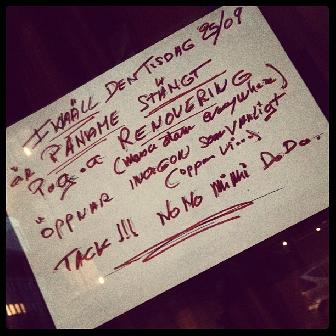 IKVÄLL DEN TISDAG 25/09
ÄR PÅNAME STÄNGT
P.g.a RENOVERING
(Makadam everywhere)
ÖPPNAR IMORGON SOM VANLIGT
(hoppas vi...)
TACK!!! NoNo MiMi DoDo.